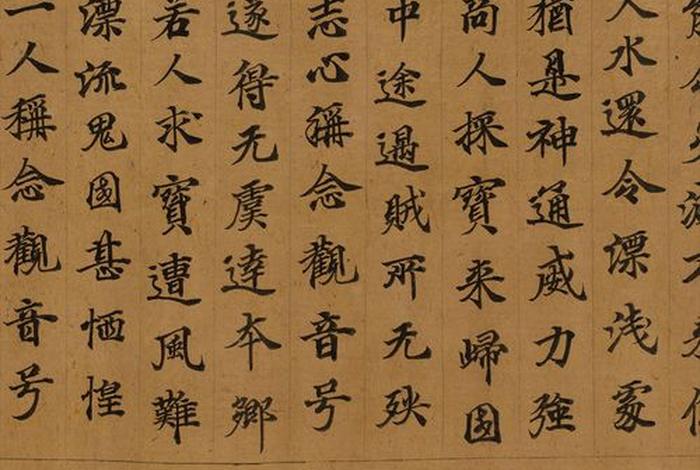 水還令漂浅處
猶是神通威力強
尚人採寶来歸國
中途遇賊所无殃
志心稱念觀音号
遂得无虞達本鄉
若人求寶遭風難
漂流鬼國甚恓惶
一人稱念觀音号